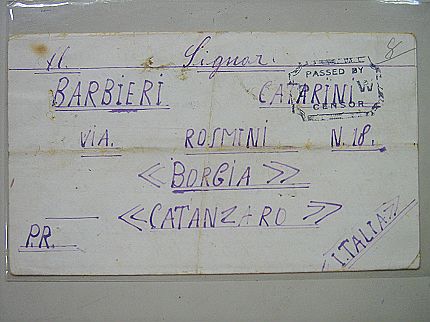 Al. Signor.
BARBIERI CATARINI
PASSED BY
W
CENSOR
VIA. ROSMINI N. 18.
<<BORGIA>>
<<CATANZARO>>
P.R.
ITALIA>>